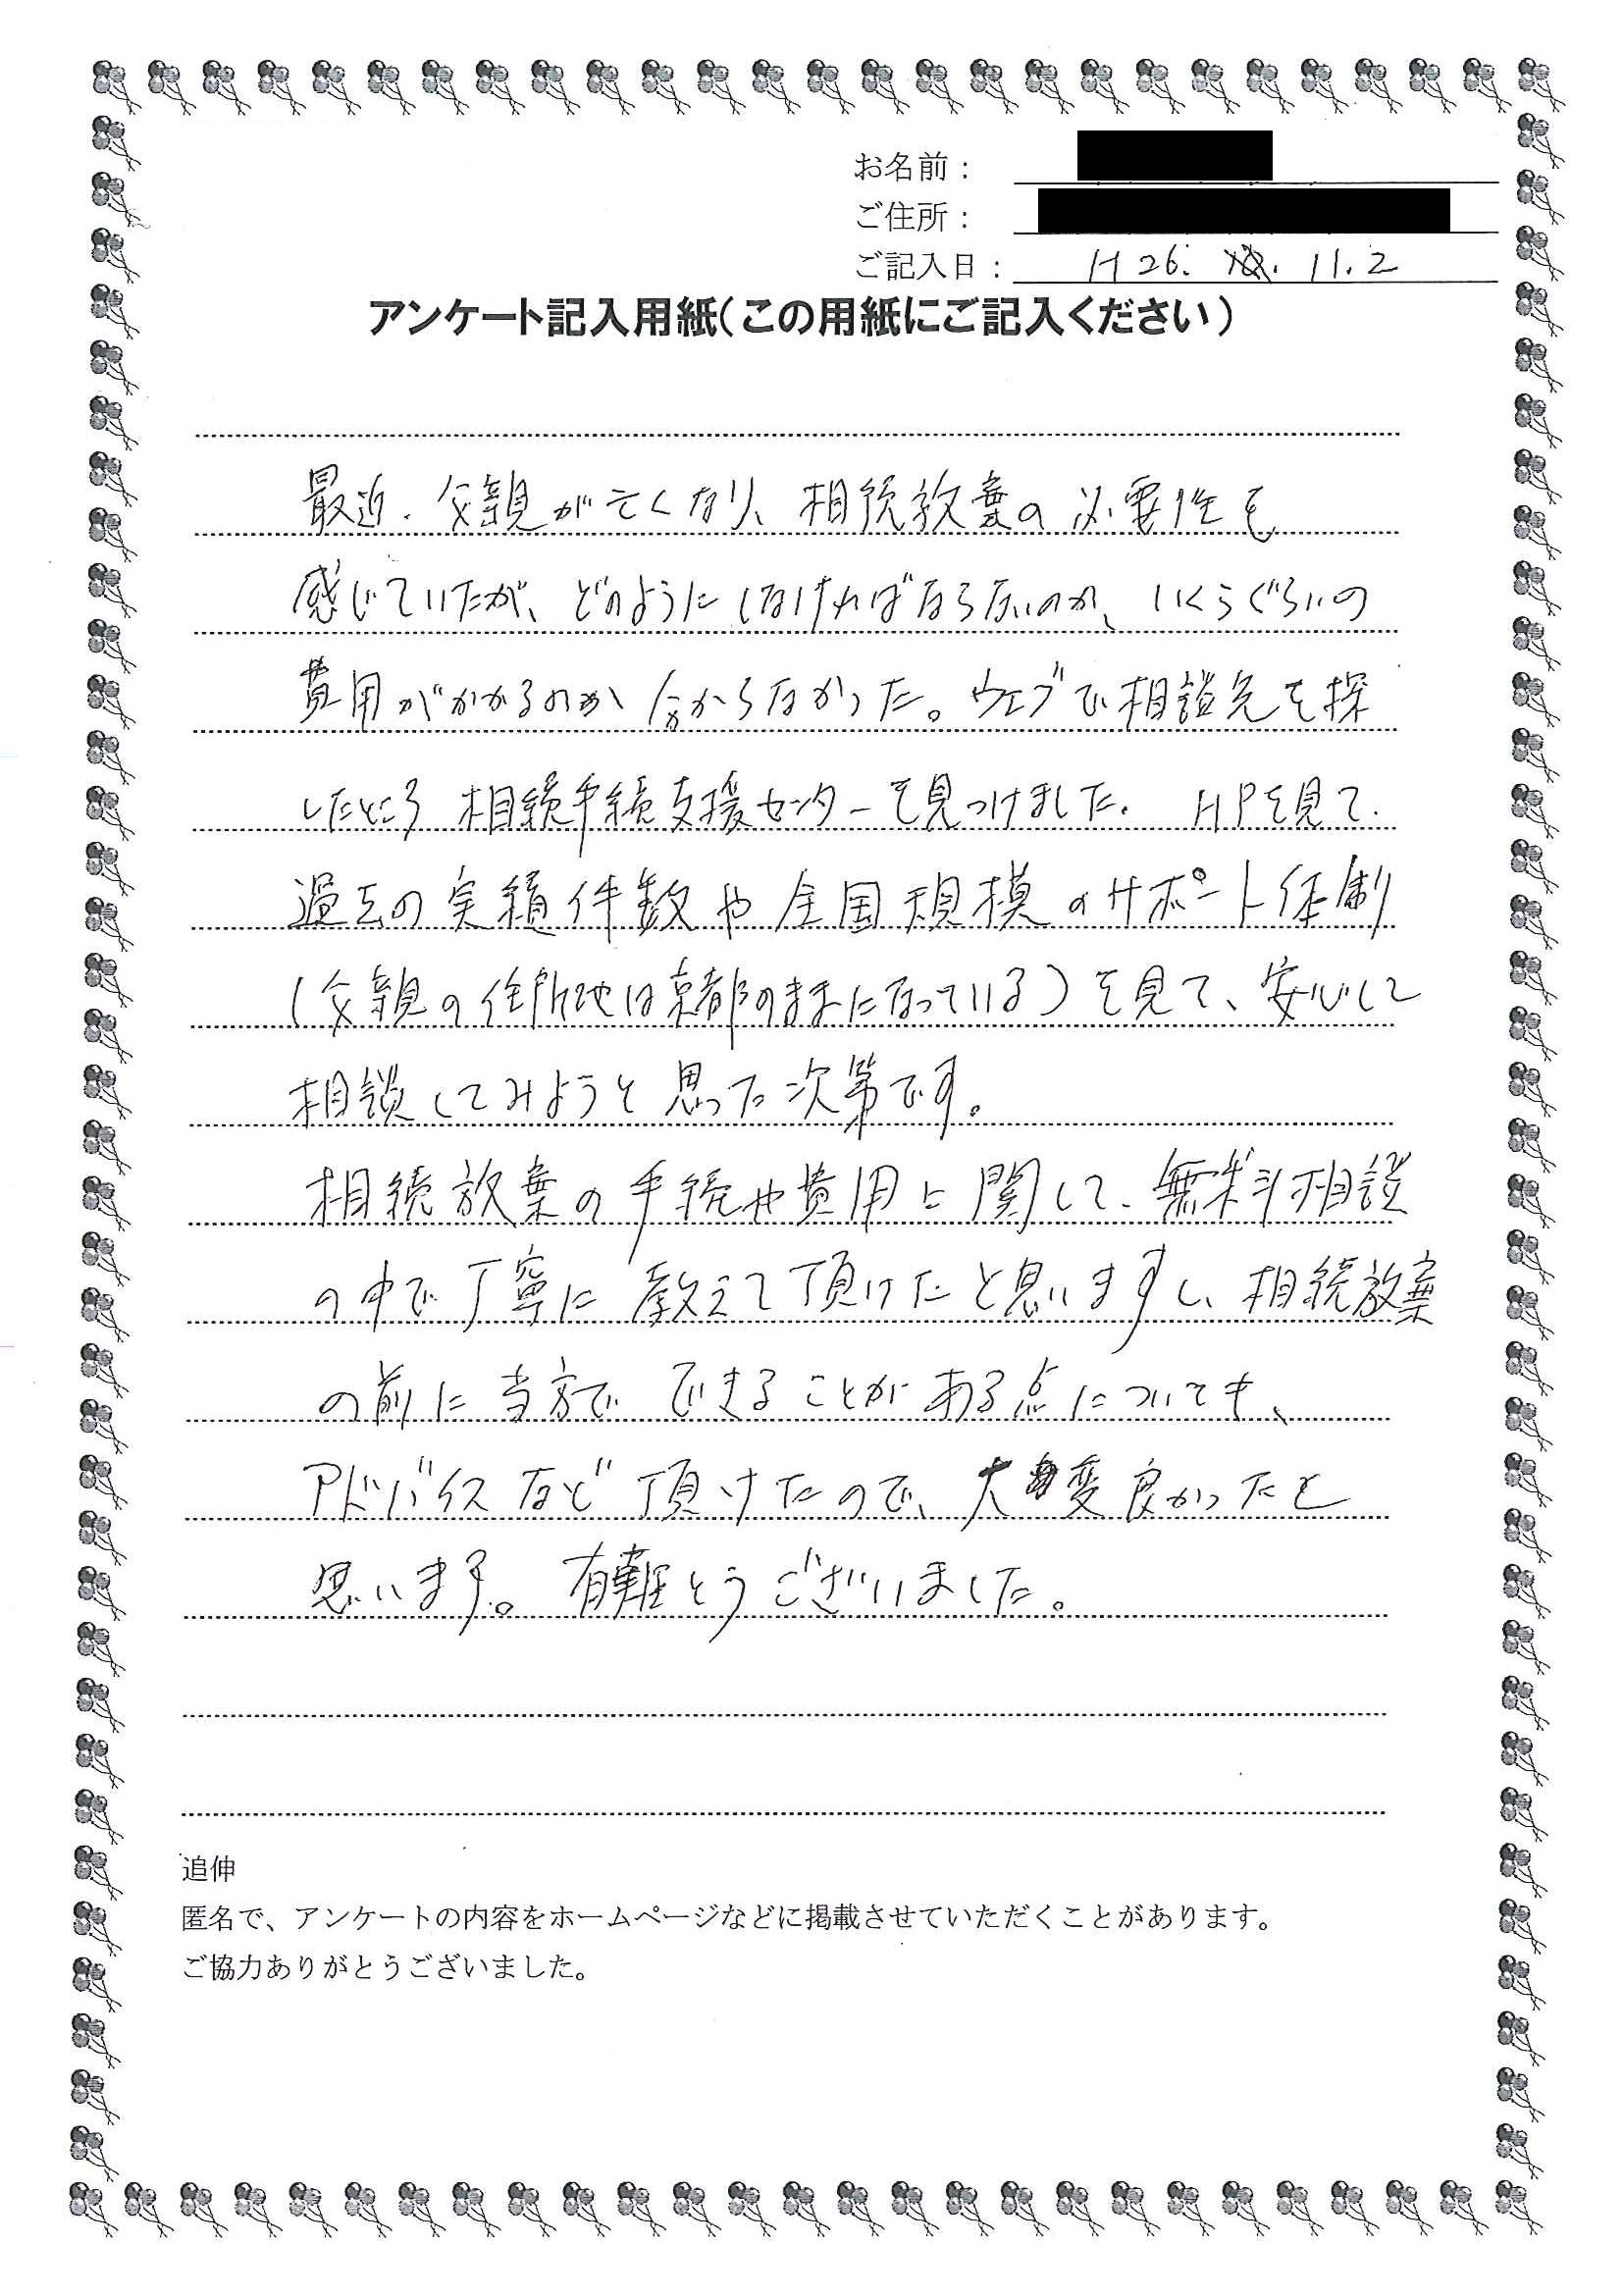 お名前：
ご住所：
ご記入日： H26. 11.2
アンケート記入用紙（この用紙にご記入ください）
最近、父親が亡くなり、相続放棄の必要性を
感じていたが、どのようにしなければならないのか、いくらぐらいの
費用がかかるのか分からなかった。ウェブで相談先を探
したところ 相続手続支援センターを見つけました。 HPを見て、
過去の実績件数や全国規模のサポート体制
(父親の住所地は京都のままになっている)を見て、安心して
相談してみようと思った次第です。
相続放棄の手続や費用に関して、無料相談
の中で丁寧に教えて頂けたと思いますし、相続放棄
の前に当方でできることがある点についても、
アドバイスなど頂けたので、大変良かったと
思います。有難とうございました。
追伸
匿名で、アンケートの内容をホームページなどに掲載させていただくことがあります。
ご協力ありがとうございました。